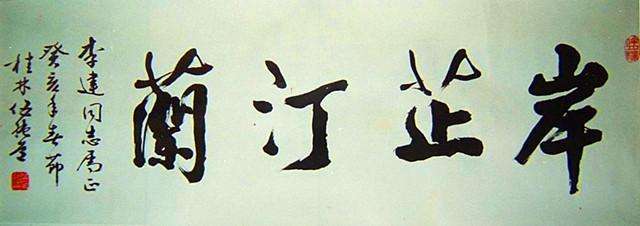 岸芷汀蘭
李建同志屬正
癸亥年春節
桂林伍純道